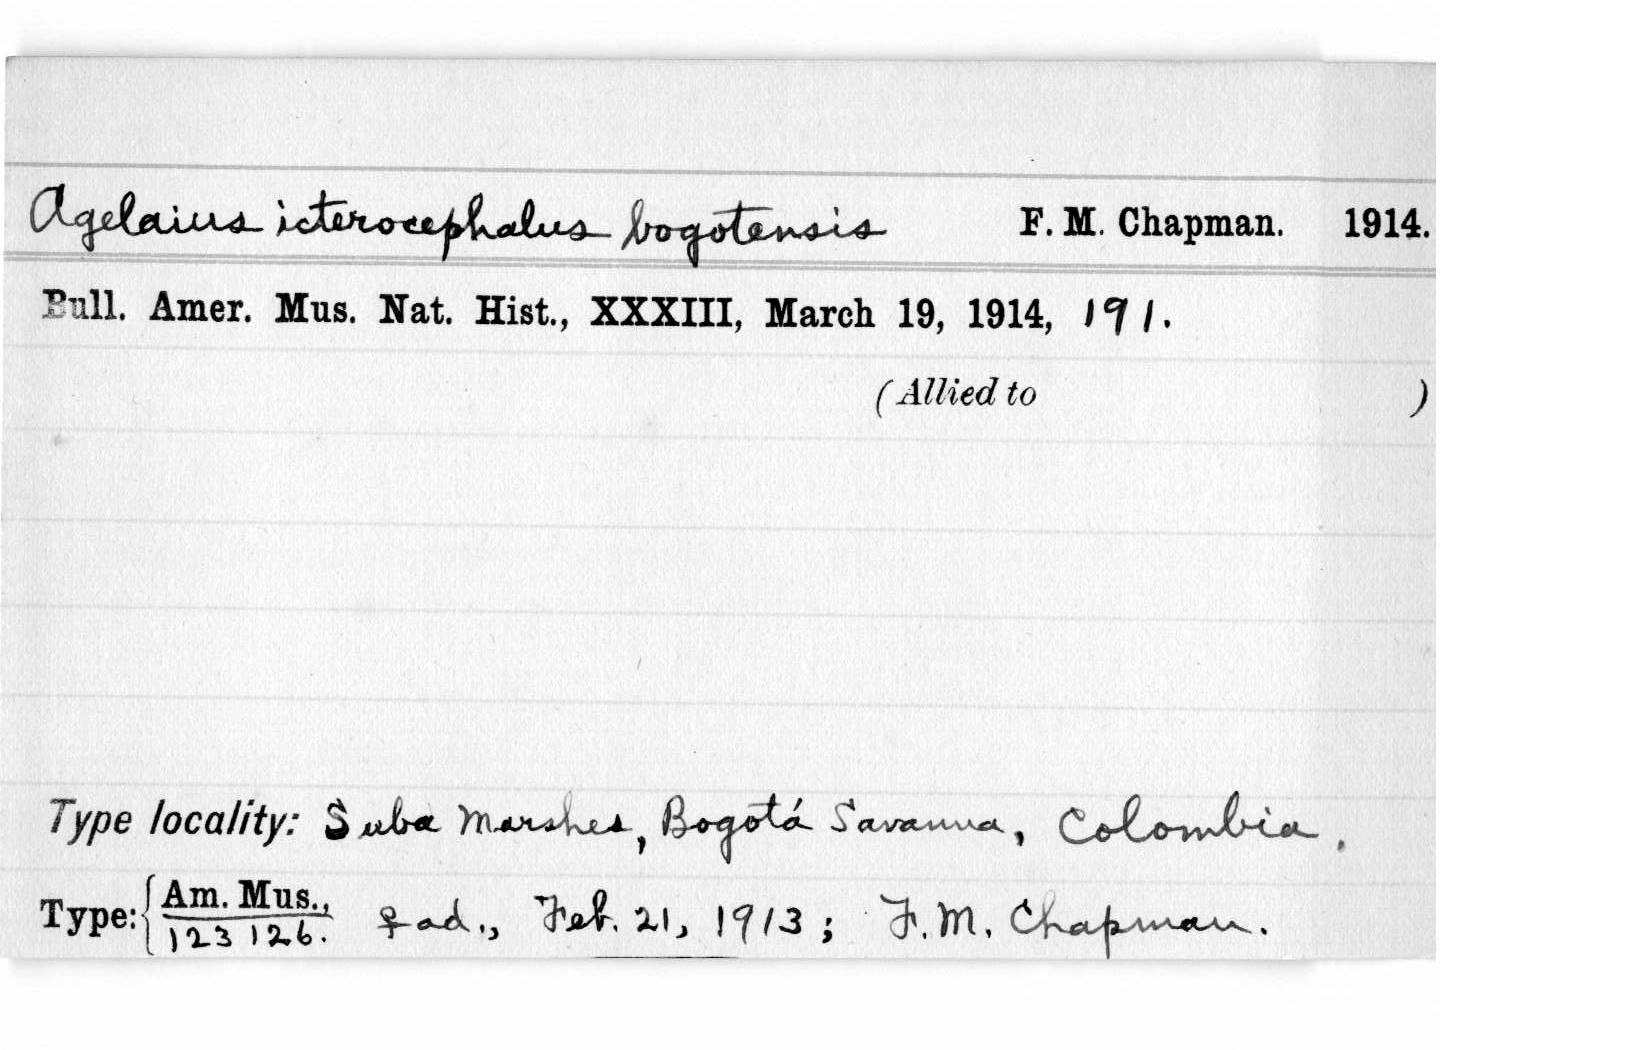 Agelaius icterocephalus bogotensis F. M. Chapman. 1914.
Bull. Amer. Mus. Nat. Hist., XXXIII, March 19, 1914, 191.
(Allied to )
Type locality: Suba Marshes, Bogotá Savanna, Colombia.
Type: { Am. Mus.,
123126. ♀ ad., Feb. 21, 1913; F. M. Chapman.